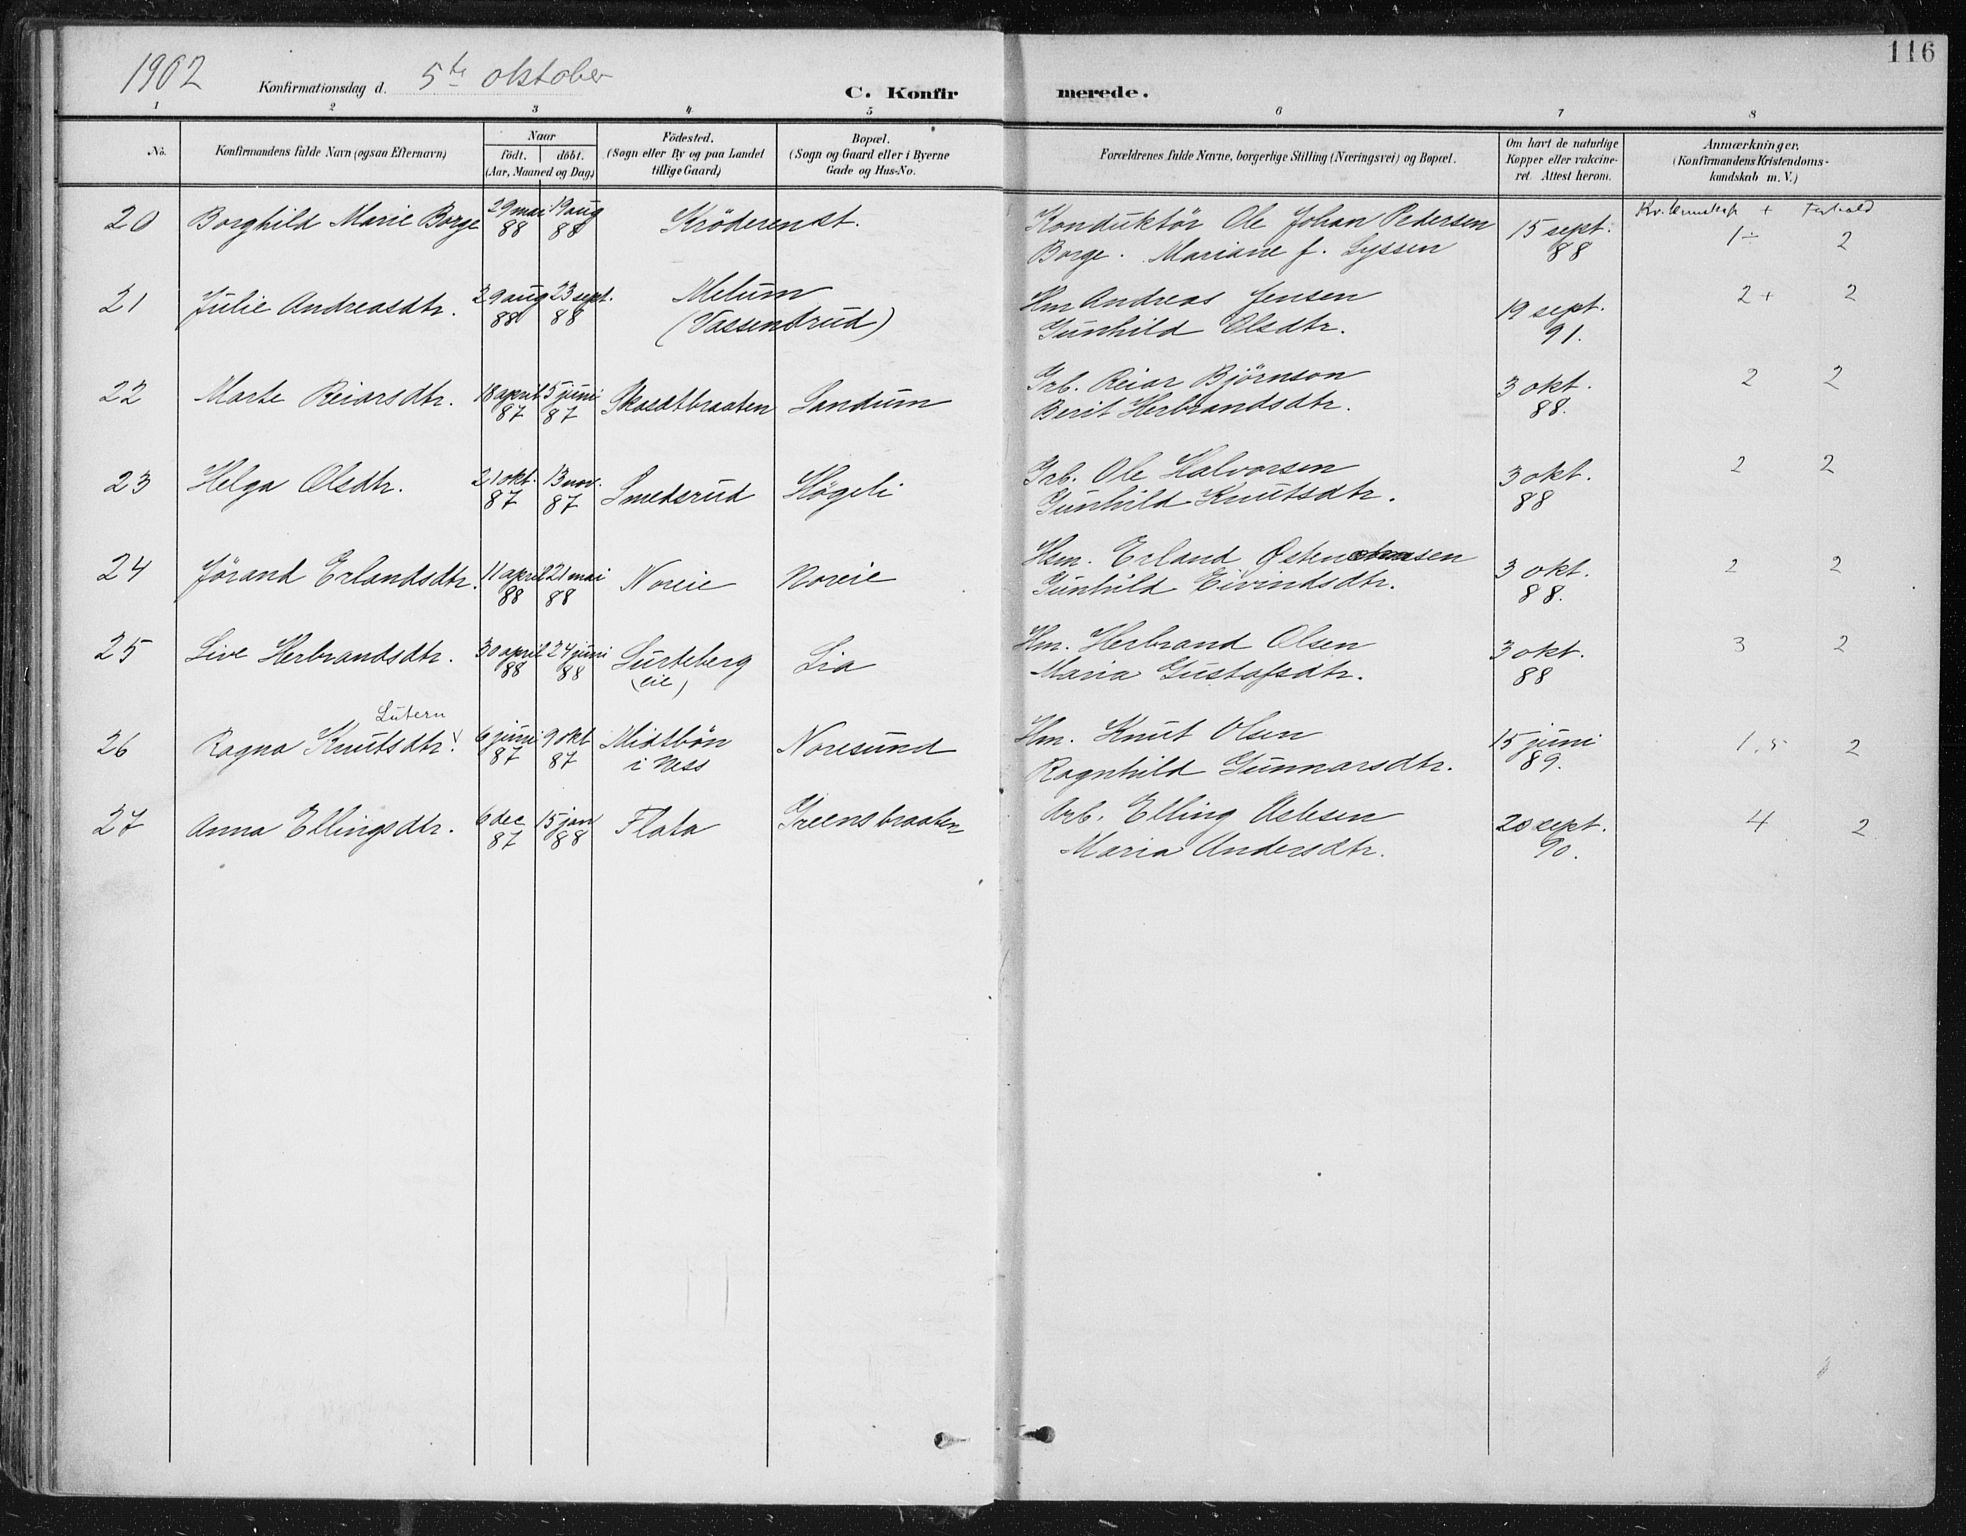 116
1902 Konfirmationsdag d. 5te oktober C. Konfirmerede.
1 2 3 4 5 6 7 8
No. Konfirmandens fulde Navn (ogsaa Efternavn) Naar født. døbt. (Aar, Maaned og Dag) Fødested. (Sogn eller By og paa Landet tillige Gaard) Bopæl. (Sogn og Gaard eller i Byerne Gade og Hus-No. Forældrenes fulde Navne, borgerlige Stilling (Næringsvei) og Bopæl. Om havt de naturlige Kopper eller vakcineret. Attest herom. Anmærkninger. (Konfirmandens Kristendomskundskab m. V.)
20 Borghild Marie Borge 29 mai 88 19 aug 88 Krøderen st. Konduktør Ole Johan Pedersen 15 sept. 88 1÷ 2
Borge. Mariane f. Lyssen
21 Julie Andreasdtr. 29 aug 88 23 sept. 88 Melum (Vassendrud) Hm Andreas Jensen 19 sept. 91. 2+ 2
Gunhild Olsdtr.
22 Marte Reiarsdtr. 18 april 87 5 juni 87 Skaratbraaten Sandum Grb. Reiar Bjørnson 3 okt. 88. 2 2
Berit Herbrandsdtr.
23 Helga Olsdtr. 21 okt. 87 13 nov. 87 Smedsrud Høgeli Grb. Ole Halvorsen 3 okt. 88 2 2
Gunhild Knutsdtr.
24 Jørand Erlandsdtr. 11 april 88 21 mai 88 Noreie Noreie Hsm. Erland Østensen 3 okt. 88. 2 2
Gunhild Eivindsdtr.
25 Live Herbrandsdtr. 30 april 88 24 juni 88 Surteberg (eie) Lia Hm. Herbrand Olsen 3 okt. 88 3 2
Maria Gustafsdtr.
Lutern
26 Ragna Knutsdtr. 6 juni 87 9 okt 87 Midtbøn i Ness Noresund Hm. Knut Olsen 15 juni 89. 1.5 2
Ragnhild Gunnarsdtr.
27 Anna Ellingsdtr. 6 dec 87 15 jan 88 Flata Greensbraaten Arb. Elling Aslesen 20 sept. 90. 4 2
Maria Andersdtr.